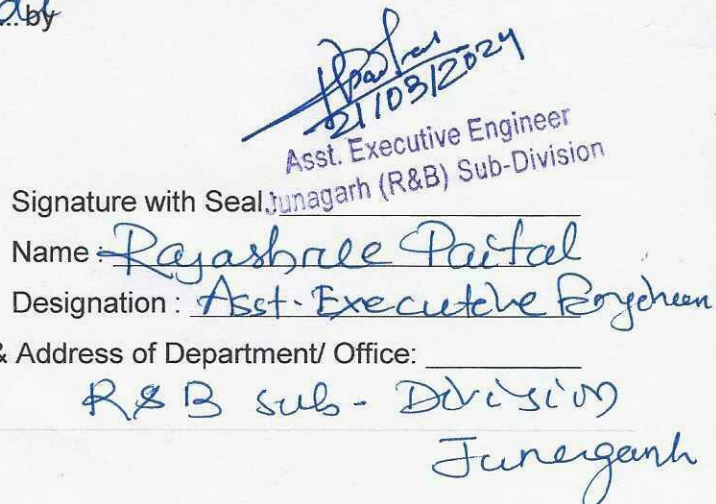 by
21/03/2024
Asst. Executive Engineer
Junagarh (R&B) Sub-Division
Signature with Seal
Name : Rajashree Paital
Designation : Asst. Executive Engineer
& Address of Department/ Office:
R&B Sub - Division
Junagarh